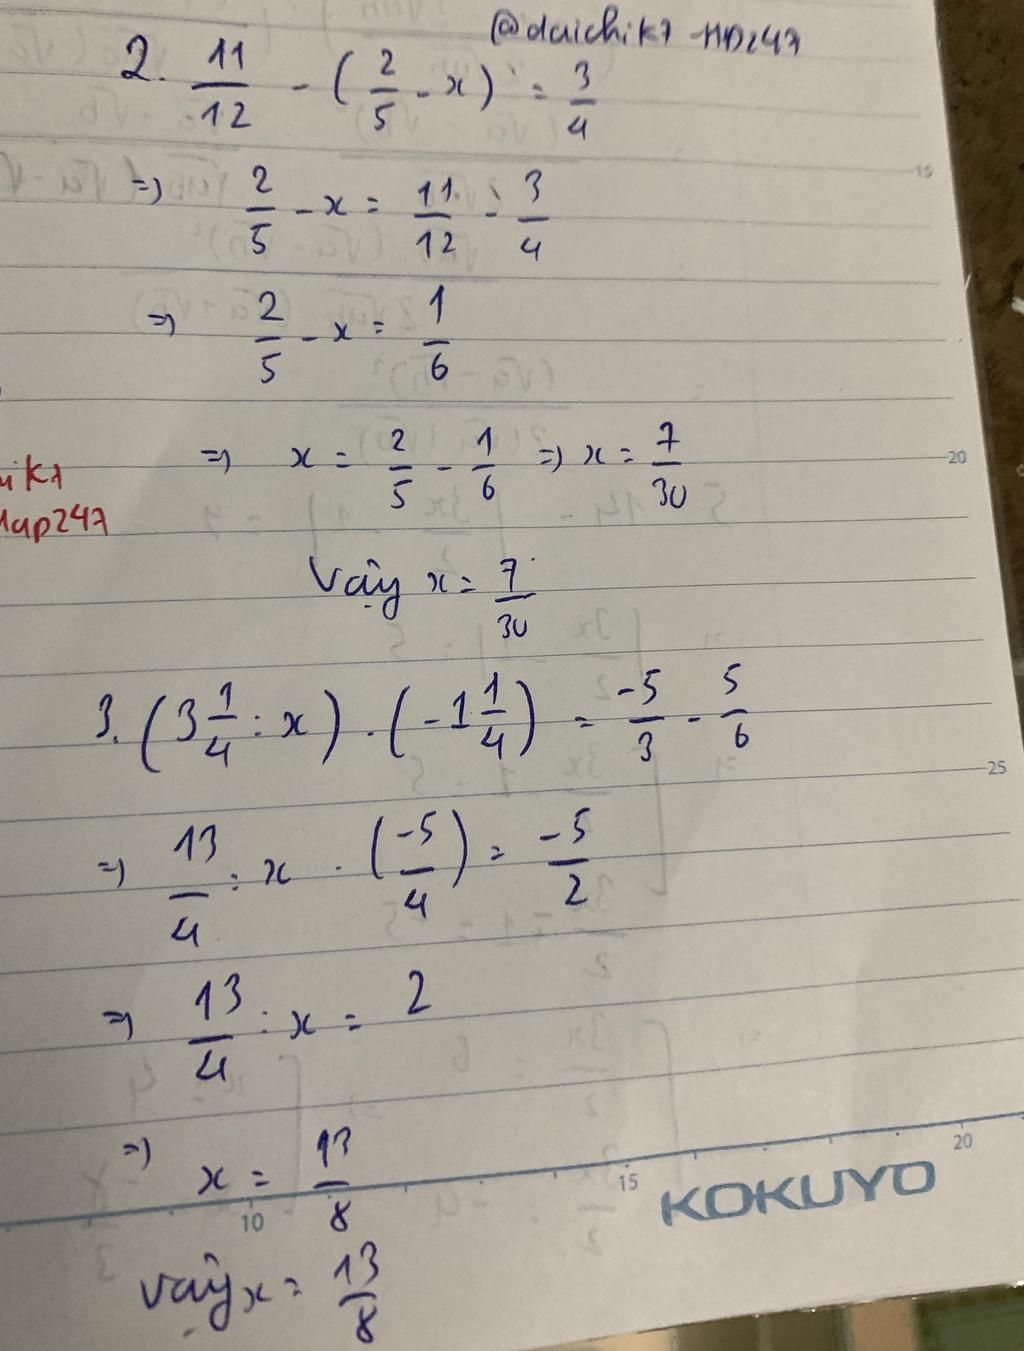 @daichik7 -HD247
2. 11/12 - (2/5 - x) = 3/4
=> 2/5 - x = 11/12 - 3/4
=> 2/5 - x = 1/6
=> x = 2/5 - 1/6 => x = 7/30
Vậy x = 7/30
3. (3 1/4 : x) . (-1 1/4) = -5/3 - 5/6
=> 13/4 : x . (-5/4) = -5/2
=> 13/4 : x = 2
=> x = 13/8
vậy x = 13/8
15
20
25
10
15
20
KOKUYO